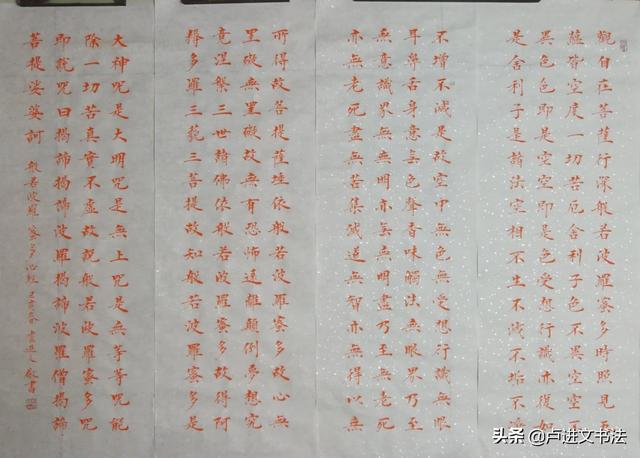 觀自在菩薩行深般若波羅蜜多時照見五
蘊皆空度一切苦厄舍利子色不異空空不
異色色即是空空即是色受想行識亦復如
是舍利子是諸法空相不生不滅不垢不淨
不增不減是故空中無色無受想行識無眼
耳鼻舌身意無色聲香味觸法無眼界乃至
無意識界無無明亦無無明盡乃至無老死
亦無老死盡無苦集滅道無智亦無得以無
所得故菩提薩埵依般若波羅蜜多故心無
罣礙無罣礙故無有恐怖遠離顛倒夢想究
竟涅槃三世諸佛依般若波羅蜜多故得阿
耨多羅三藐三菩提故知般若波羅蜜多是
大神咒是大明咒是無上咒是無等等咒能
除一切苦真實不虛故說般若波羅蜜多咒
即說咒曰揭諦揭諦波羅揭諦波羅僧揭諦
菩提娑婆訶 般若波羅蜜多心經 盧進文敬書
头条 @卢进文书法